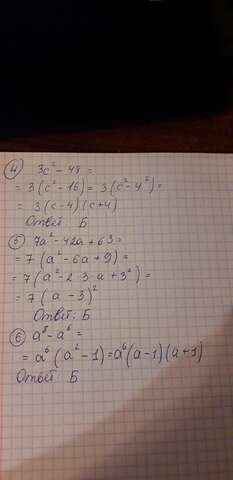 ④ 3c² - 48 =
= 3(c² - 16) = 3(c² - 4²) =
= 3(c-4)(c+4)
Ответ Б
⑤ 7a² - 42a + 63 =
= 7(a² - 6a + 9) =
= 7(a² - 2 3 a + 3²) =
= 7(a - 3)²
Ответ: Б
⑥ a⁸ - a⁶ =
= a⁶(a² - 1) = a⁶(a-1)(a+1)
Ответ Б